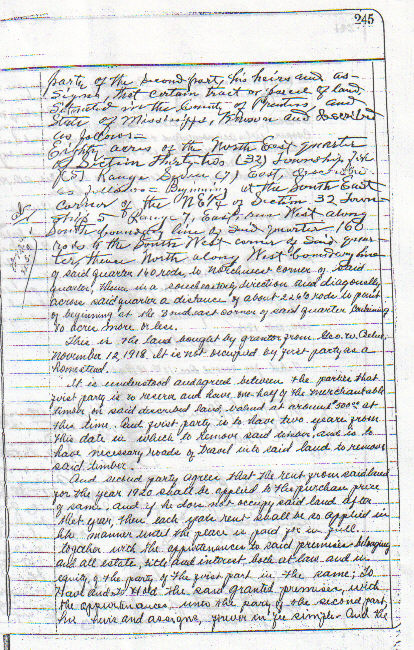 245
party of the second part, his heirs and as-
signs, that certain tract or parcel of land
Situated in the County of Prentiss, and
State of Mississippi, Known and described
as follows =
Eighty acres of the North East quarter
of Section Thirty two (32) Township five
(5) Range Seven (7) East,
as follows = Beginning at the South East
corner of the NE¼ of Section 32 Town-
ship 5 Range 7, East, run West along
South boundry line of said quarter 160
rods to the South West corner of said quar-
ter, thence North along West boundry line
of said quarter 160 rods to northwest corner of said
quarter, thence in a southeasterly direction and diagonally
across said quarter a distance of about 226 rods to point
of beginning at the southeast corner of said quarter containing
80 acres more or less.
This is the land bought by grantor from Geo. W.
November 12, 1918. It is not occupied by first party as a
homestead.
It is understood and agreed between the parties that
first party is to reserve and have one-half of the merchantable
timber on said described land, valued at around 500.00 at
this time. And first party is to have two years from
this date in which to remove said timber, and is to
have necessary roads of travel into said land to remove
said timber.
And second party agrees that the rent from said land
for the year 1920 shall be applied to the purchase price
of same. And if he does not occupy said land after
that year, then each years rent shall be so applied in
like manner until the place is paid for in full.
together with the appurtenances to said premises belonging
and all estate, title and interest, both at law and in
equity, of the party of the first part in the same; To
Have and to Hold the said granted premises, with
the appurtenances, unto the party of the second part
his heirs and assigns, forever in fee simple. And the